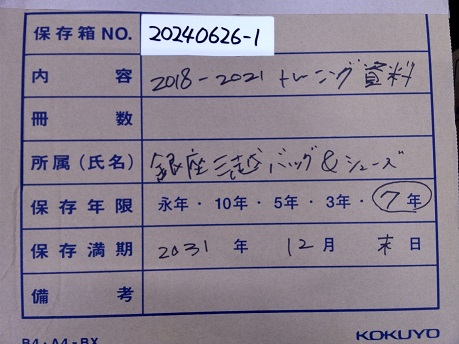 保存箱NO. 20240626-1
内容 2018-2021 トレーニング資料
冊数
所属(氏名) 銀座三越バッグ&シューズ
保存年限 永年・10年・5年・3年・7年
保存満期 2031年 12月 末日
備考
B4・A4-BX KOKUYO